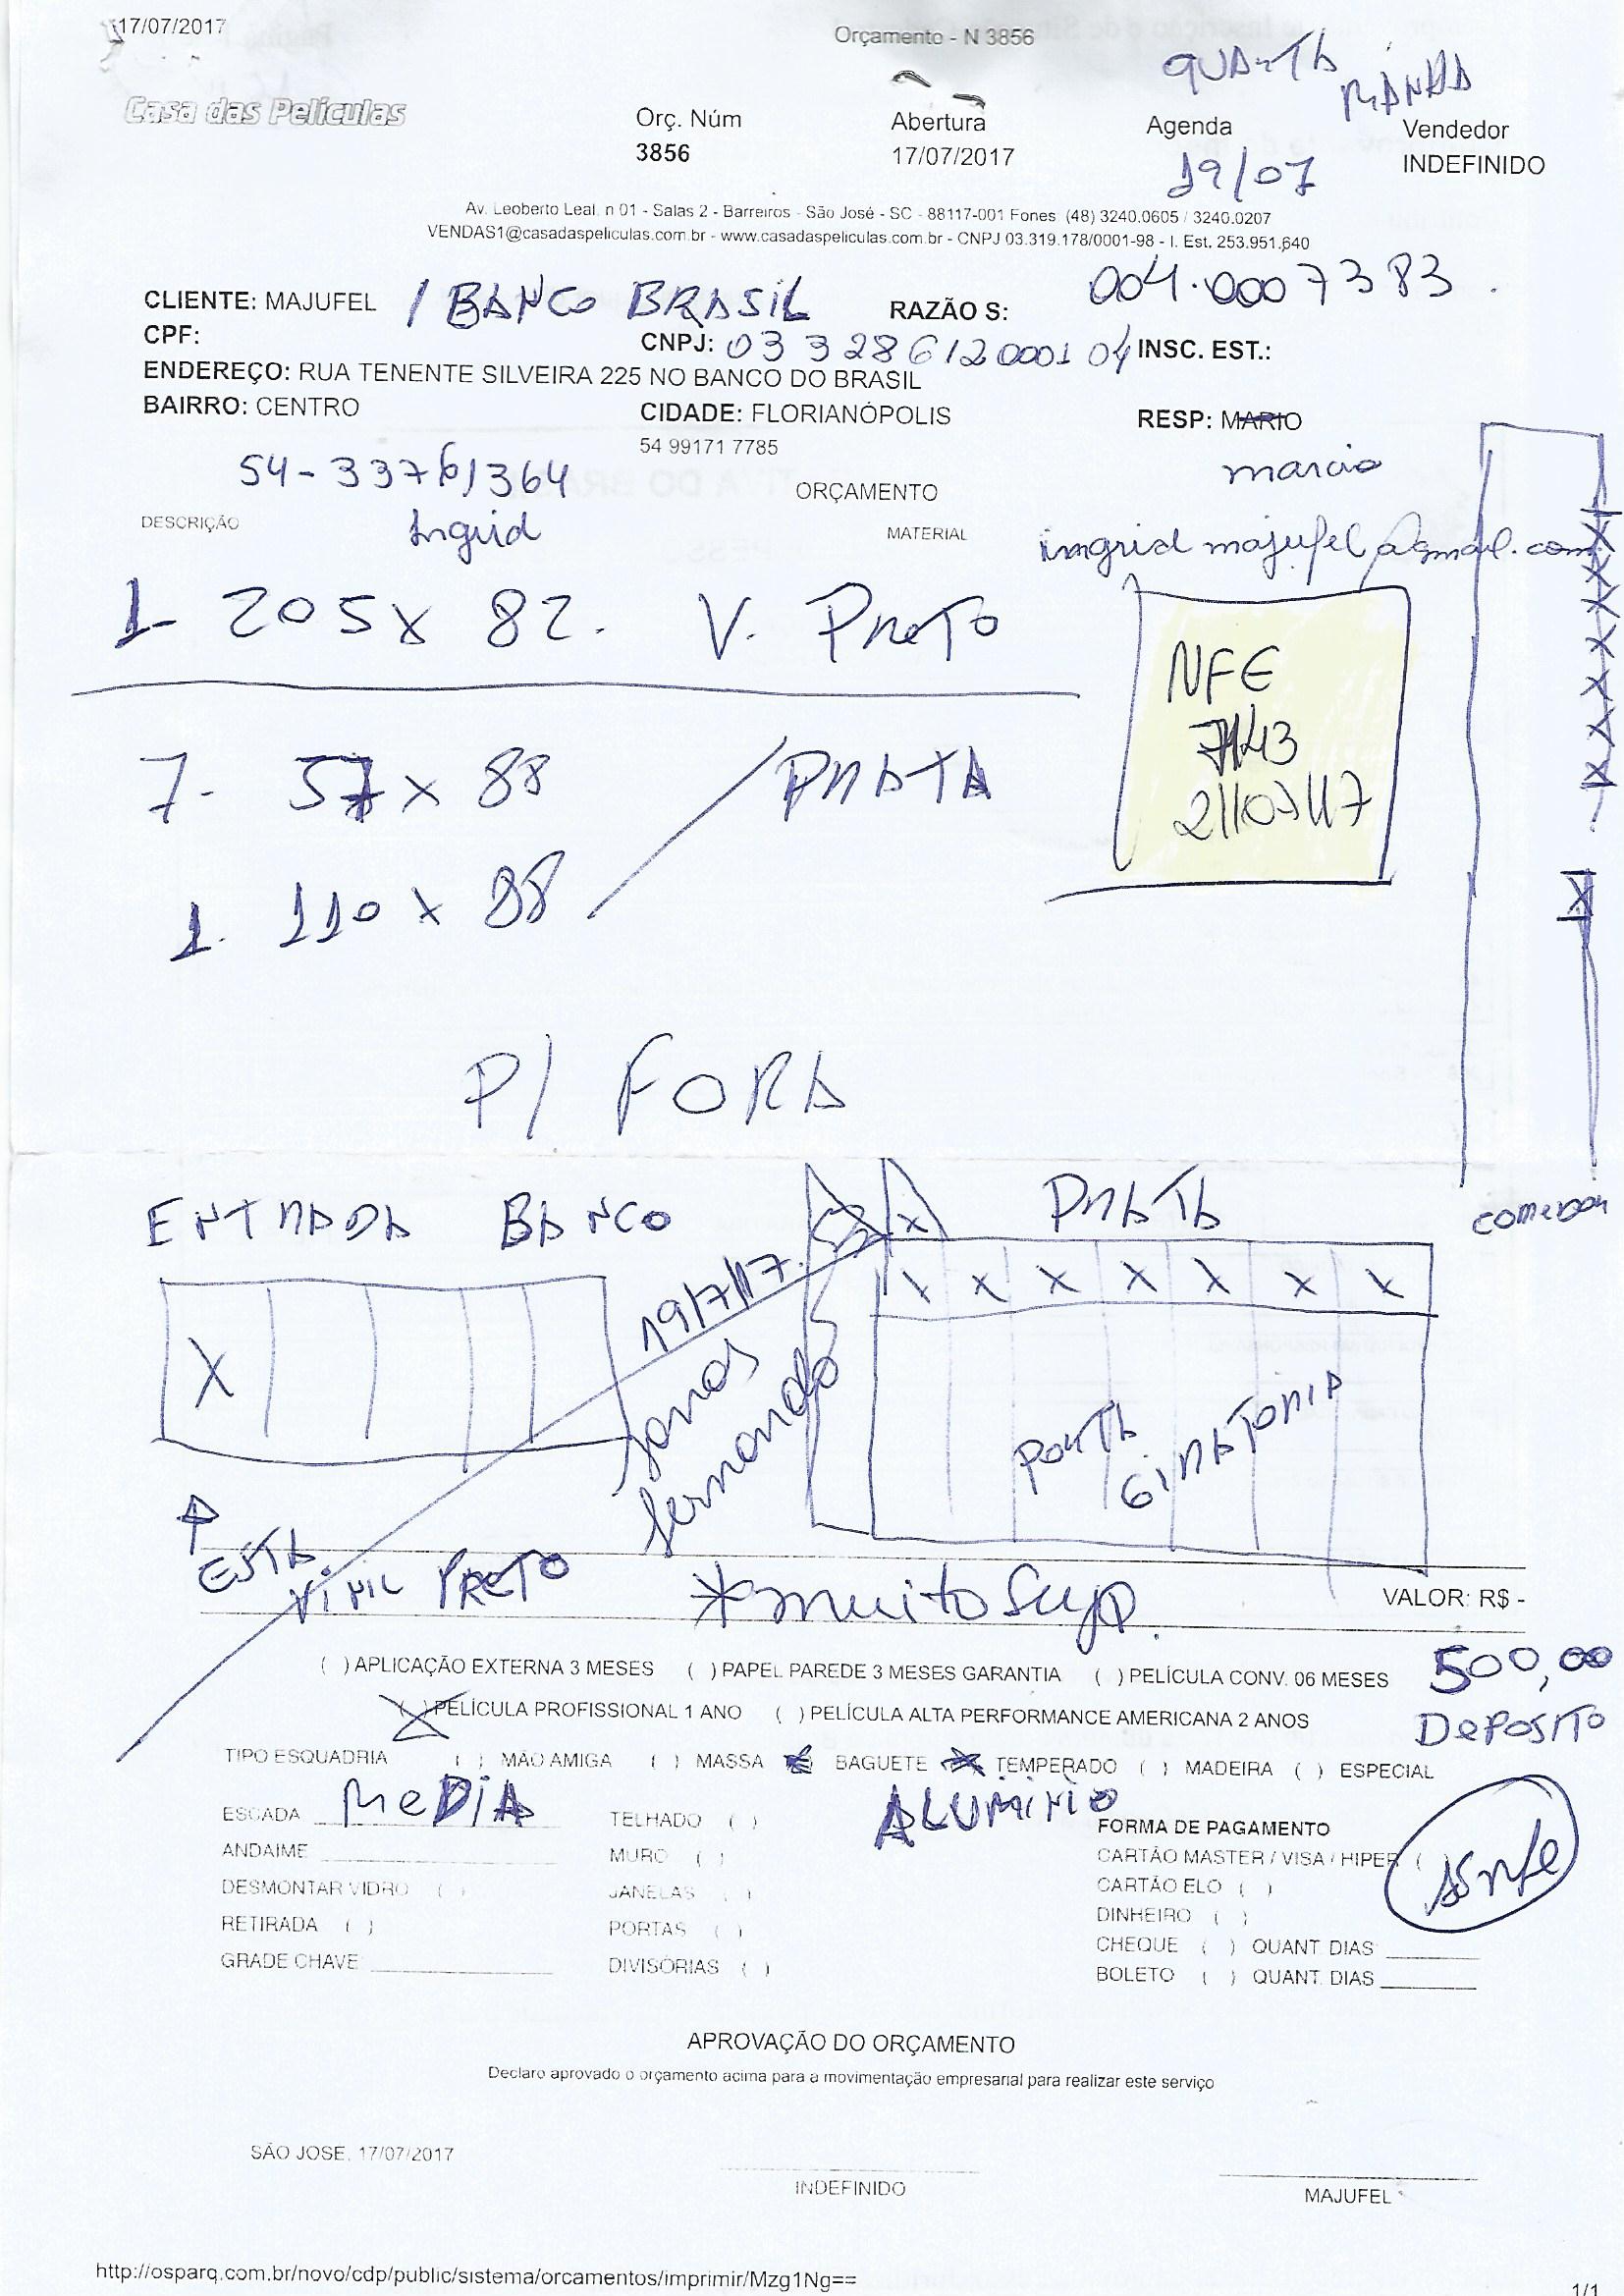 17/07/2017
Orçamento - N 3856
QUARTA
MANHA
Casa das Películas
Orç. Núm Abertura Agenda Vendedor
3856 17/07/2017 19/07 INDEFINIDO
Av. Leoberto Leal, n 01 - Salas 2 - Barreiros - São José - SC - 88117-001 Fones: (48) 3240.0605 / 3240.0207
VENDAS1@casadaspeliculas.com.br - www.casadaspeliculas.com.br - CNPJ 03.319.178/0001-98 - I. Est. 253.951.640
004.0007383.
CLIENTE: MAJUFEL / BANCO BRASIL RAZÃO S:
CPF: CNPJ: 03328612000104 INSC. EST.:
ENDEREÇO: RUA TENENTE SILVEIRA 225 NO BANCO DO BRASIL
BAIRRO: CENTRO CIDADE: FLORIANÓPOLIS RESP: MARIO
54 99171 7785
marcio
54-33761364
ORÇAMENTO
Ingrid
DESCRIÇÃO MATERIAL
ingridmajufel@gmail.com
1- 205 x 82. V. PRETO
NFE
7143
21/07/17
7- 57 x 88 PRATA
1. 110 x 88
P/ FORA
ENTRADA BANCO PRATA
comedor
X
X
X X X X X X X
19/7/17.
Jonas
fernando
PORTA
GIRATORIA
ESTA
VINIL PRETO
*muito Sujo.
VALOR: R$ -
500,00
DEPOSITO
( ) APLICAÇÃO EXTERNA 3 MESES ( ) PAPEL PAREDE 3 MESES GARANTIA ( ) PELÍCULA CONV. 06 MESES
( ) PELÍCULA PROFISSIONAL 1 ANO ( ) PELÍCULA ALTA PERFORMANCE AMERICANA 2 ANOS
TIPO ESQUADRIA ( ) MÃO AMIGA ( ) MASSA BAGUETE TEMPERADO ( ) MADEIRA ( ) ESPECIAL
ALUMINIO
ESCADA MEDIA TELHADO ( )
ANDAIME MURO ( )
DESMONTAR VIDRO ( ) JANELAS ( )
RETIRADA ( ) PORTAS ( )
GRADE CHAVE DIVISÓRIAS ( )
FORMA DE PAGAMENTO
CARTÃO MASTER / VISA / HIPER ( )
CARTÃO ELO ( )
DINHEIRO ( )
CHEQUE ( ) QUANT. DIAS
BOLETO ( ) QUANT. DIAS
APROVAÇÃO DO ORÇAMENTO
Declaro aprovado o orçamento acima para a movimentação empresarial para realizar este serviço
SÃO JOSE, 17/07/2017
INDEFINIDO
MAJUFEL
http://osparq.com.br/novo/cdp/public/sistema/orcamentos/imprimir/Mzg1Ng==
1/1